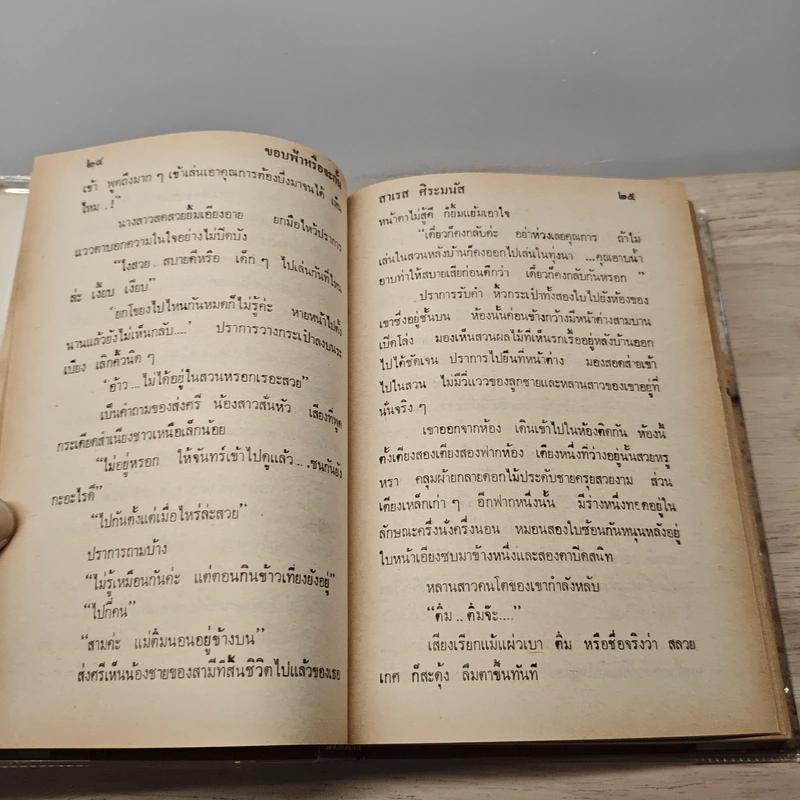 ๒๔
ขอบฟ้าหรือจะกั้น
เช้า พูดถึงมาก ๆ เข้าเล่นเอาคุณการต้องบึ่งมาจนได้ เห็น
ไหม ..!"
นางสาวสดสวยยิ้มเอียงอาย ยกมือไหว้ปราการ
แววตาบอกความในใจอย่างไม่ปิดบัง
"ไงสวย .. สบายดีหรือ เด็ก ๆ ไปเล่นกันที่ไหน
ล่ะ เงี้ยบ เงียบ"
"ยกโขยงไปไหนกันหมดก็ไม่รู้ค่ะ หายหน้าไปตั้ง
นานแล้วยังไม่เห็นกลับ....' ปราการวางกระเป๋าลงบนระ
เบียง เลิกคิ้วนิด ๆ
"อ้าว ... ไม่ได้อยู่ในสวนหรอกเรอะสวย"
เป็นคำถามของส่งศรี น้องสาวสั่นหัว เสียงที่พูด
กระเดียดสำเนียงชาวเหนือเล็กน้อย
"ไม่อยู่หรอก ให้จันทร์เข้าไปดูแล้ว ... .ซนกันยัง
กะอะไรดี"
"ไปกันตั้งแต่เมื่อไหร่ล่ะสวย"
ปราการถามบ้าง
"ไม่รู้เหมือนกันค่ะ แต่ตอนกินข้าวเที่ยงยังอยู่"
"ไปกี่คน"
"สามค่ะ แม่ติ๋มนอนอยู่ข้างบน"
ส่งศรีเห็นน้องชายของสามีที่สิ้นชีวิตไปแล้วของเธอ
สาเรส ศิระมนัส
๒๕
หน้าตาไม่สู้ดี ก็ยิ้มแย้มเอาใจ
"เดี๋ยวก็คงกลับค่ะ อย่าห่วงเลยคุณการ ถ้าไม่
เล่นในสวนหลังบ้านก็คงออกไปเล่นในทุ่งนา ...คุณอาบน้ำ
อาบท่าให้สบายเสียก่อนดีกว่า เดี๋ยวก็คงกลับกันหรอก "
ปราการรับคำ หิ้วกระเป๋าทั้งสองใบไปยังห้องของ
เขาซึ่งอยู่ชั้นบน ห้องนั้นค่อนข้างกว้างมีหน้าต่างสามบาน
เปิดโล่ง มองเห็นสวนผลไม้ที่เห็นรกเรื้ออยู่หลังบ้านออก
ไปได้ชัดเจน ปราการไปยืนที่หน้าต่าง มองสอดส่ายเข้า
ไปในสวน ไม่มีวี่แววของลูกชายและหลานสาวของเขาอยู่ที่
นั่นจริง ๆ
เขาออกจากห้อง เดินเข้าไปในห้องติดกัน ห้องนี้
ตั้งเตียงสองเตียงสองฟากห้อง เตียงหนึ่งที่ว่างอยู่นั้นสวยหรู
หรา คลุมผ้ายกลายดอกไม้ประดับชายครุยสวยงาม ส่วน
เตียงเหล็กเก่า ๆ อีกฟากหนึ่งนั้น มีร่างหนึ่งทอดอยู่ใน
ลักษณะครึ่งนั่งครึ่งนอน หมอนสองใบซ้อนกันหนุนหลังอยู่
ใบหน้าเอียงซบมาข้างหนึ่งและสองตาปิดสนิท
หลานสาวคนโตของเขากำลังหลับ
"ติ๋ม .. ติ๋มจ๊ะ...."
เสียงเรียกแม้แผ่วเบา ติ๋ม หรือชื่อจริงว่า สลวย
เกศ ก็สะดุ้ง ลืมตาขึ้นทันที